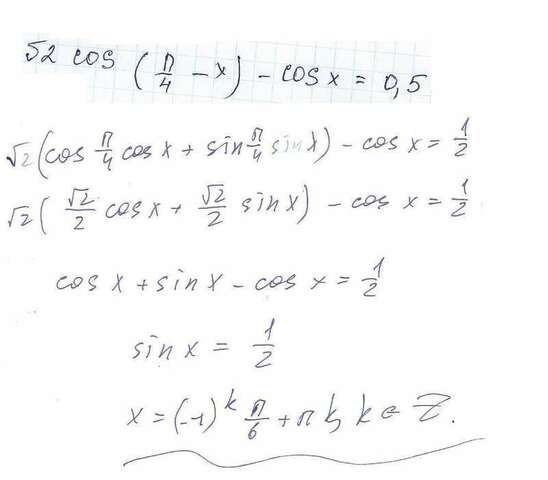 √2 cos (π/4 - x) - cos x = 0,5
√2 (cos π/4 cos x + sin π/4 sin x) - cos x = 1/2
√2 (√2/2 cos x + √2/2 sin x) - cos x = 1/2
cos x + sin x - cos x = 1/2
sin x = 1/2
x = (-1)^k π/6 + πk, k ∈ Z.